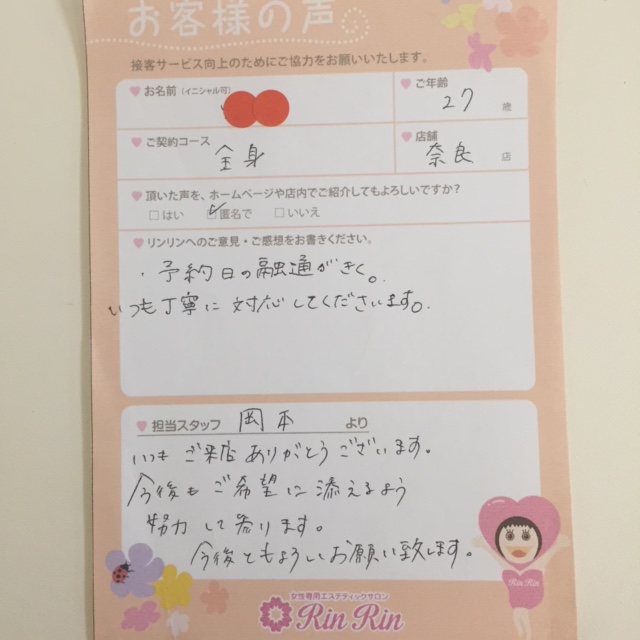 お客様の声
接客サービス向上のためにご協力をお願いいたします。
お名前（イニシャル可）
ご年齢
27 歳
ご契約コース
全身
店舗
奈良 店
頂いた声を、ホームページや店内でご紹介してもよろしいですか？
□はい ☑匿名で □いいえ
リンリンへのご意見・ご感想をお書きください。
・予約日の融通がきく。
いつも丁寧に対応してくださいます。
担当スタッフ 岡本 より
いつも ご来店ありがとうございます。
今後も ご希望に添えるよう
努力して参ります。
今後ともよろしくお願い致します。
Rin Rin
女性専用エステティックサロン
Rin Rin